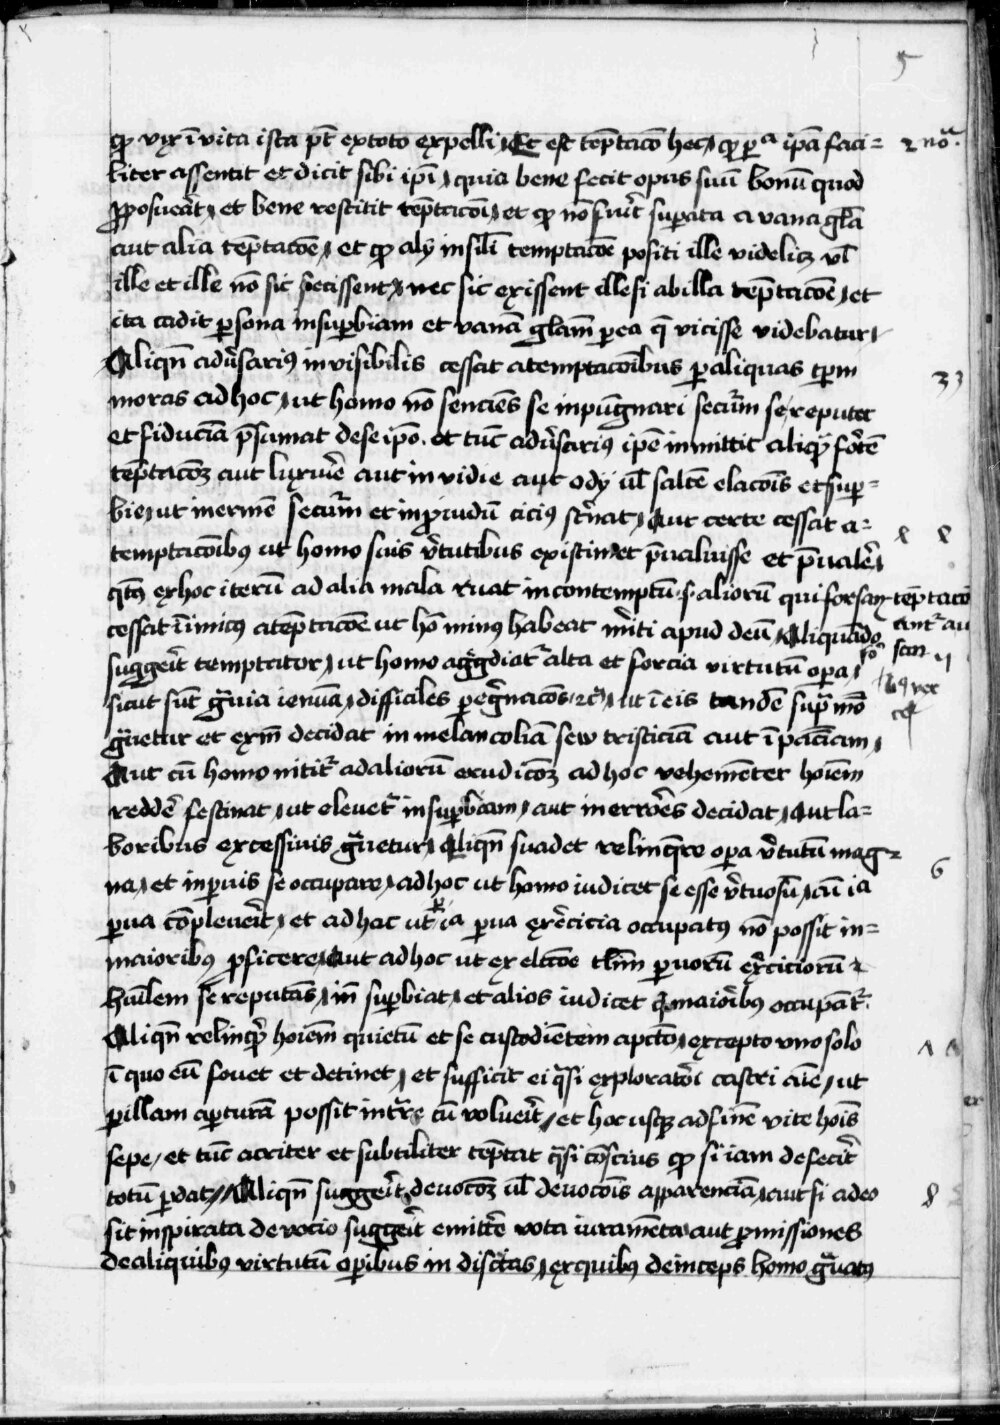 5
qͦ vix ī vita ista pt̄ ex toto expelli / Et est tēptacō hec / qͦ pͥª ip̄a faci=
2 nōª.
liter assentit et dicit sibi ip̄i / quia bene fecit opus suū bonū quod
ꝓposuerͣt / et bene restitit tēptacōi / et qͦ nō fuīt superata a vana gl̄a
aut alia tēptacōe / et qͦ alij in sil̄i temptacōe positi ille videlicꝫ vl̄
ille et ille nō sic fecissent / nec sic exissent illesi ab illa tēptacōe / et
ita cadit ꝑsona in suꝑbiam et vanā gl̄am ꝑ ea q̄ vicisse videbatur /
Aliqn̄ adũsarius invisibilis cessat a temptacōibus ꝑ aliquas tp̄m
33
moras ad hoc / ut homo nō sencies se inpūgnari secur̄m se reputet
et fiducia p̄sumat de se ip̄o . et tūc adũsarius ip̄e inmittit aliqͣ fortē
tēptacōꝫ aut luxurie aut invidie aut odij vl̄ saltē elacōis et suꝑ=
bie / ut inermē secur̄m et inꝓuidū cicius st̄nat / Aut certe cessat a=
temptacōibus ut homo suis ṽtutibus existimet p̄valuisse et p̄valer̄ /
qtꝰ ex hoc iterū ad alia mala ruat in contemptū .s. aliorū qui forsan tēptacō
cessat inimicꝰ a tēptacōe ut hō minus habeat m̄iti apud deū / Aliquādo
suggerit temptator / ut homo aggͤdiatͬ alta et forcia virtutum oꝑa /
sicut sūt gͣuia ieiunia / difficiles ꝑegͥnacōes ⁊cͣ / ut ī eis tandē supͣ mō
gͣuetur et exn̄ decidat in melancoliā seu tristiciā aut ī paciēciam /
Aut cū homo nititͬ ad aliorū erudicōꝫ ad hoc vehemēter hoīem
reddē festinat / ut elevetͬ in suꝑbiam / aut in errōes decidat / Aut la=
boribus excessiuis gͣuetur / Aliqn̄ suadet relinq̄re oꝑa ṽtutū mag=
na / et in ꝑuis se occupare / ad hoc ut homo iudicet se esse ṽtuosū / cū ia
6
ꝑua cōpleverit / et ad hac ut ī ia ꝑua exͤcicia occupatus nō possit in=
maioribꝰ ꝓficere / Aut ad hoc ut ex elcōe tl̄im ꝑuorū exͤciciorū
humil̄em se reputās / in̄ suꝑbiat / et alios iudicet q̄ maioribus occupātͬ.
Aliqn̄ relinqͥt hoīem quietū et se custodiētem a pctō / excepto vno solo
ī quo eū fovet et detinet / et sufficit ei qͣsi exploratōi castri aīe / ut
ꝑ illam aꝑturā possit intrare cū voluerit / et hoc usqꝫ ad finē vite hoīs
sepe / et tūc acriter et subtiliter tēptat qͣsi cōscius qͦ si iam defecerit
totū ꝑdat // Aliqn̄ suggerit devocōꝫ vl̄ devocōis apparenciā / aut si a deo
8
sit inspirata devocio suggerit emittē vota iuramēta aut ꝓmissiones
de aliquibus virtutū oꝑibus indiscͤtas / ex quibꝰ deinceps homo gͣuatus